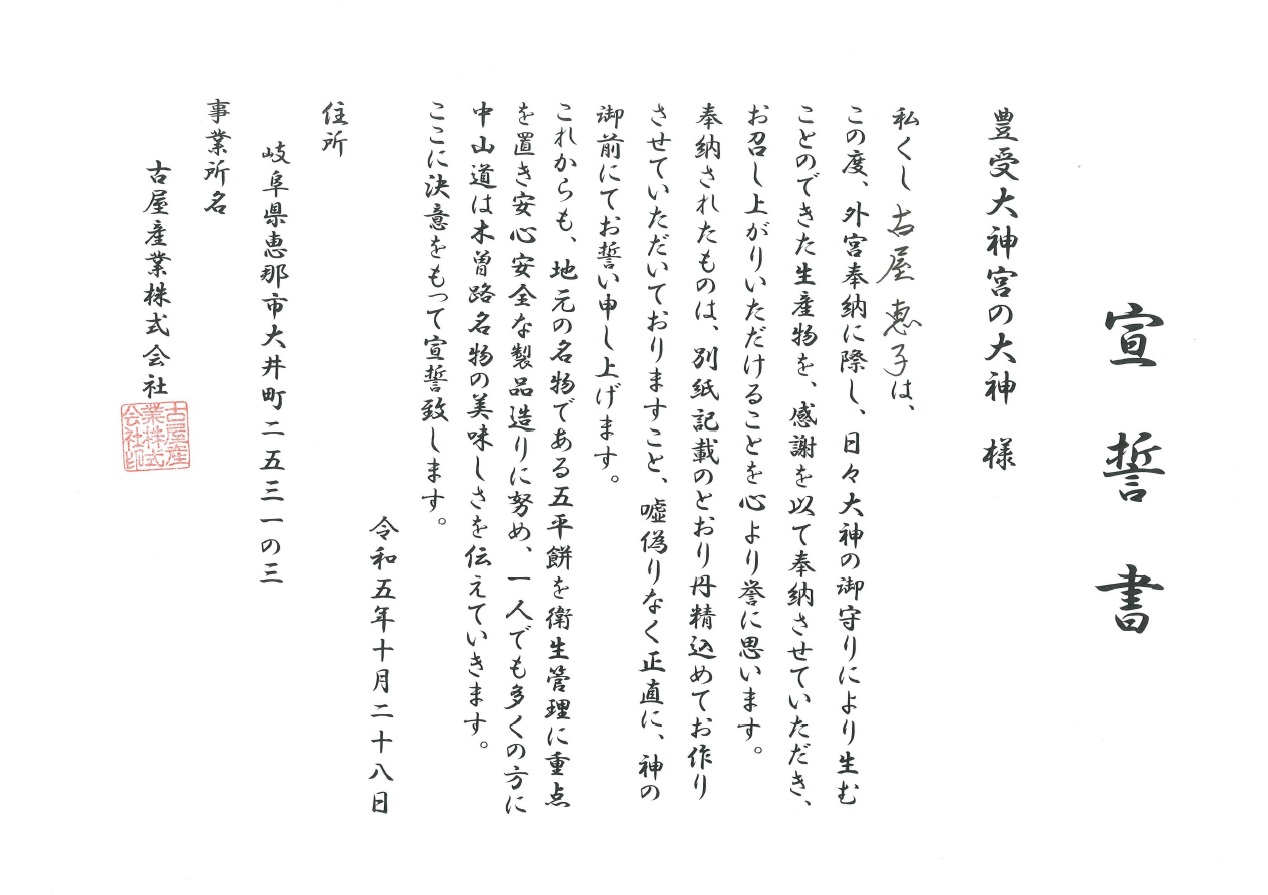 宣誓書
豊受大神宮の大神　様
私くし古屋恵子は、
この度、外宮奉納に際し、日々大神の御守りにより生む
ことのできた生産物を、感謝を以て奉納させていただき、
お召し上がりいただけることを心より誉に思います。
奉納されたものは、別紙記載のとおり丹精込めてお作り
させていただいておりますこと、嘘偽りなく正直に、神の
御前にてお誓い申し上げます。
これからも、地元の名物である五平餅を衛生管理に重点
を置き安心安全な製品造りに努め、一人でも多くの方に
中山道は木曽路名物の美味しさを伝えていきます。
ここに決意をもって宣誓致します。
令和五年十月二十八日
住所
岐阜県恵那市大井町二五三一の三
事業所名
古屋産業株式会社
古屋産業株式会社印